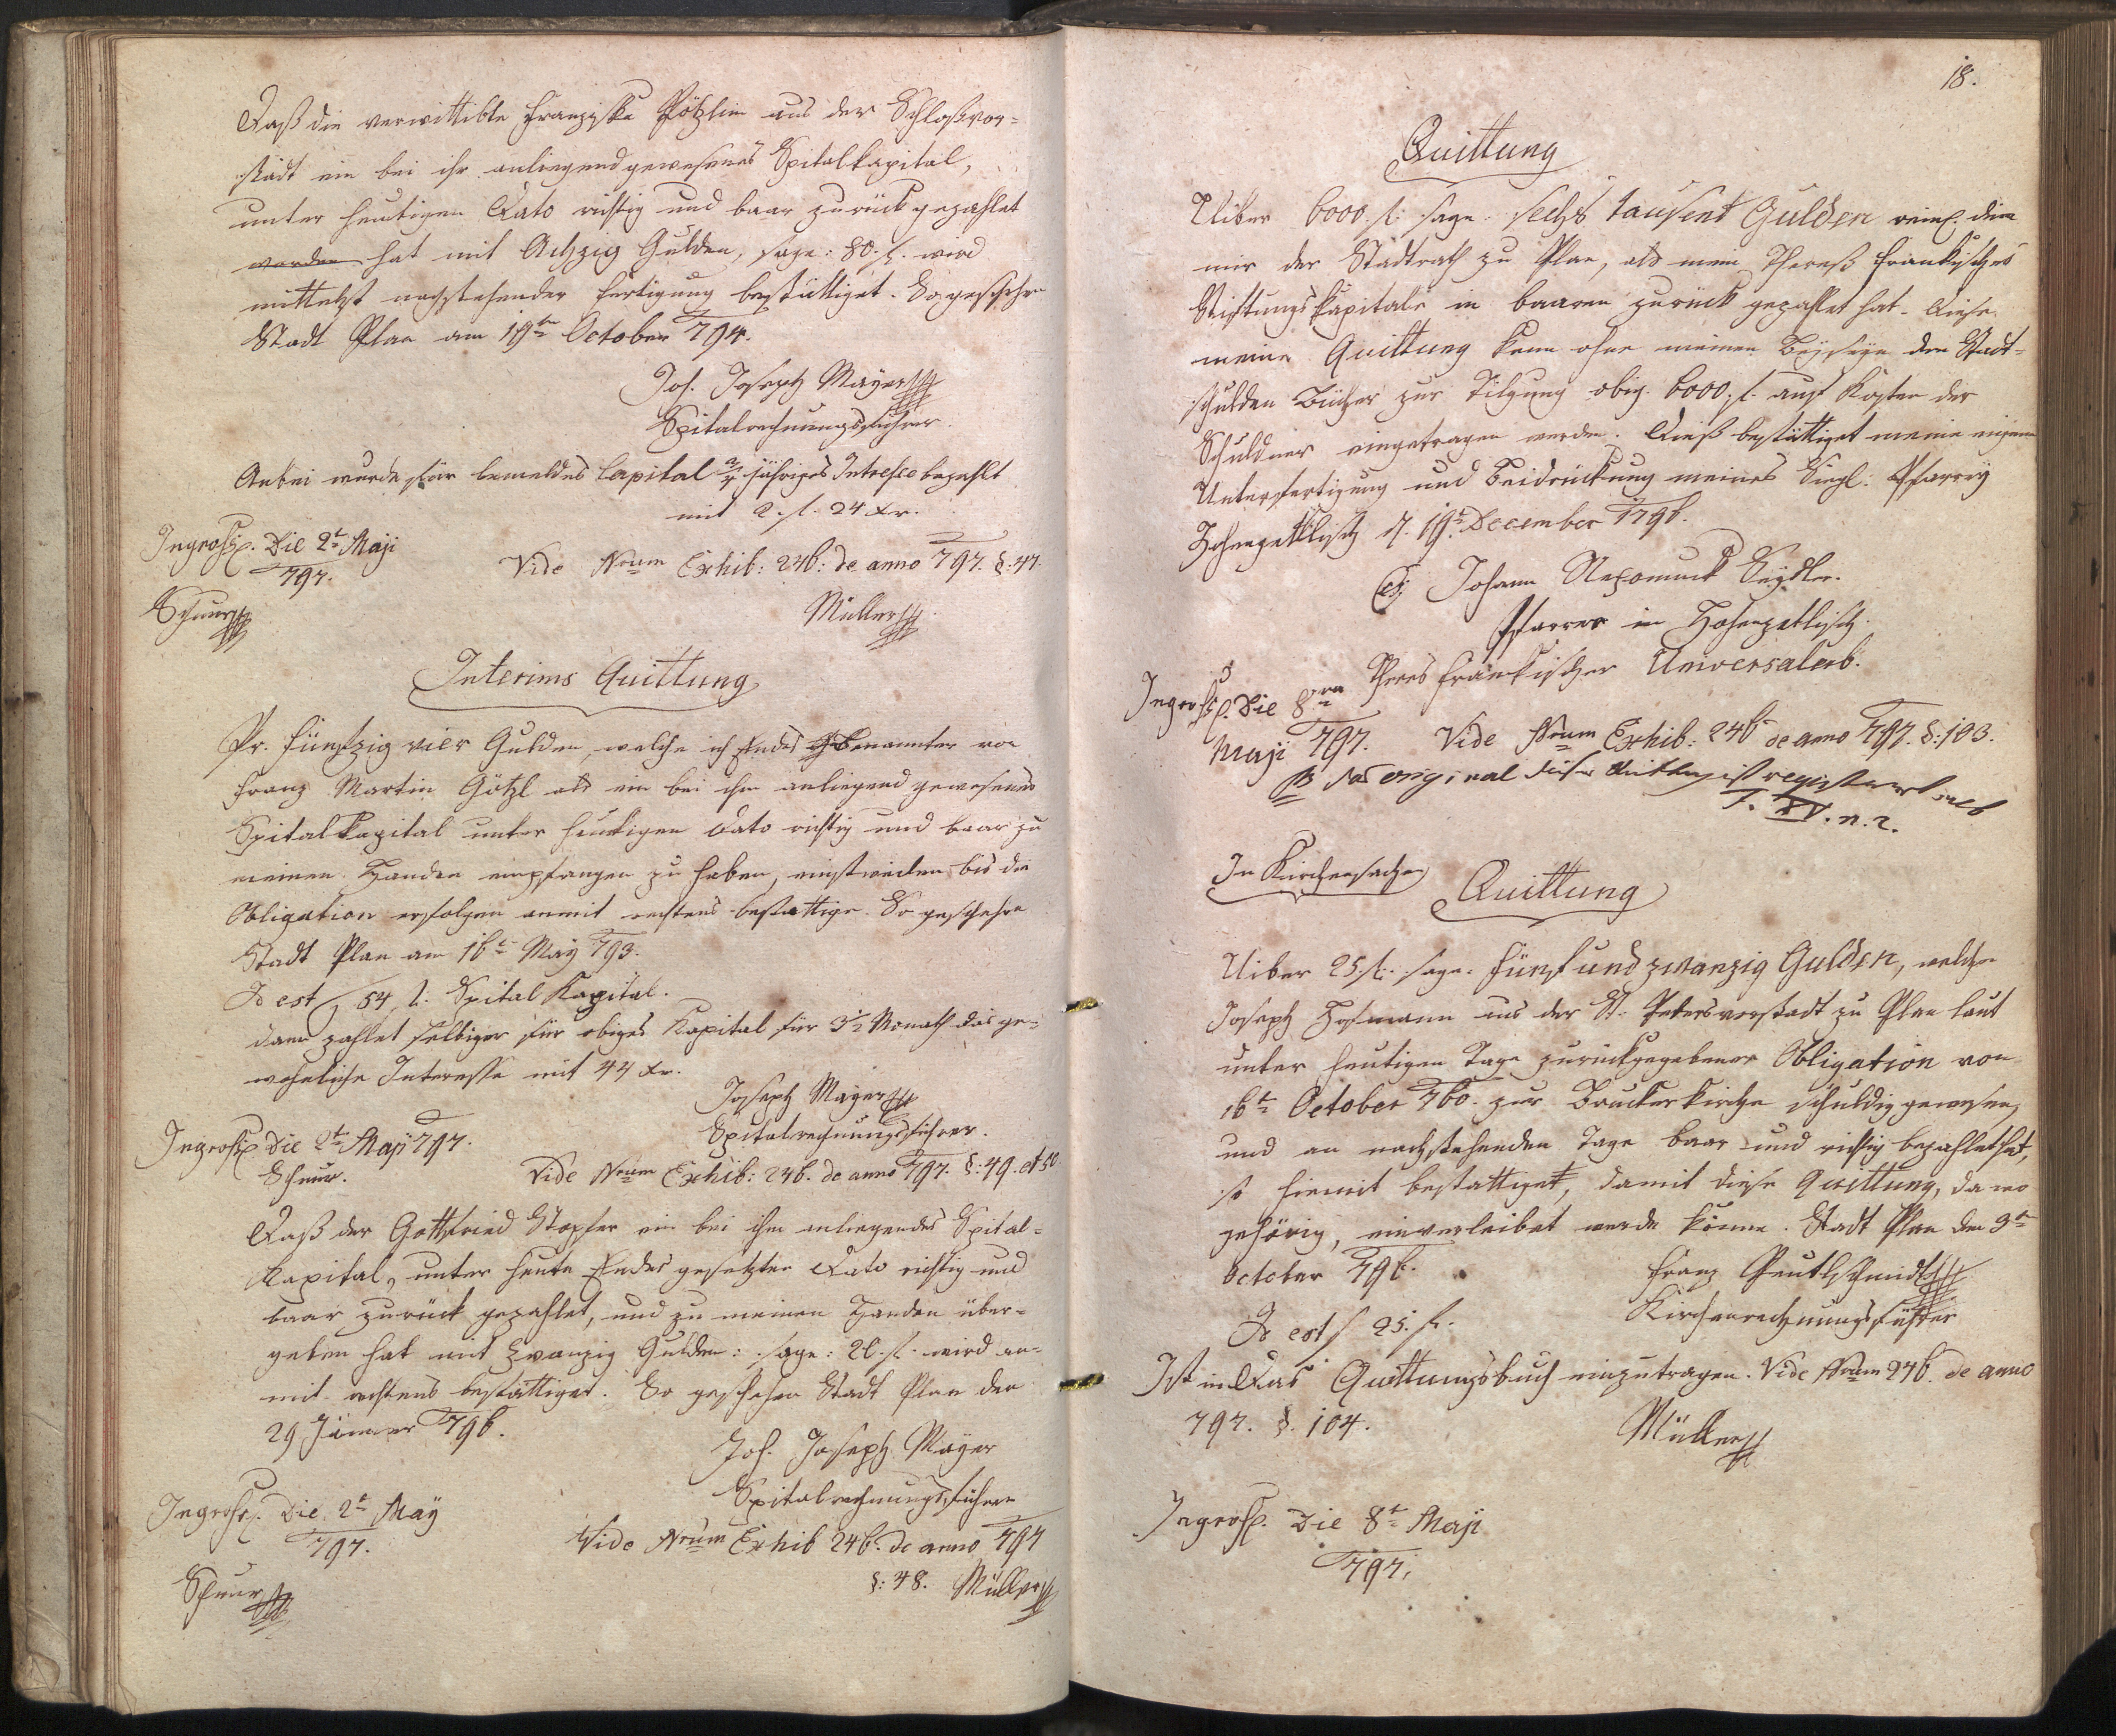 Daß die verwittibte Franziska Pötzlin aus der Schloßvor=
stadt ein bei ihr anliegend gewesenes Spitalkapital,
unter heutigen Dato richtig und baar zurück gezahlet
worden hat mit Achzig Gulden, sage: 80. f. wird
mittelst nachstehender Fertigung bestättiget. So geschehen
Stadt Plan am 19ten October 794.
Joh. Joseph Mayer
Spitalrechnungsführer.
Anbei wurde für bemeldes Capital jähriges Intresse bezahlt
mit 2. f. 24 xr.
Ingross. Die 2t Maji
797.
Vide Nrum Exhib: 246: de anno 797. §. 47.
Schnur
Müller
Interims Quittung
Pr. Fünfzig vier Gulden, welche ich Endes benannter von
Franz Martin Götzl als ein bei ihm anliegend gewesenes
Spitalkapital unter heutigen Dato richtig und baar zu
meinen Handen empfangen zu haben, einstweilen bis die
Obligation erfolgen anmit rechtens bestättige. So geschehen
Stadt Plan am 16t May 793.
Id est 54 f: Spital Kapital.
dann zahlet selbiger für obiges Kapital für 3 1/2 Monath das ge=
wohnliche Interesse mit 44 xr.
Joseph Mayer
Spitalrechnungsführer.
Ingross. Die 2t Maji 797.
Schnur.
Vide Nrum Exhib: 246. de anno 797. §: 49. et 50
Daß der Gottfried Stopfer ein bei ihm anliegendes Spital=
Kapital, unter heute Endes gesetzten Dato richtig und
baar zurück gezahlet, und zu meinen Handen über=
geben hat mit Zwanzig Gulden: sage: 20. f. wird an=
mit rechtens bestättiget. So geschehen Stadt Plan den
29 Jänner 796.
Joh. Joseph Mayer
Spitalrechnungsführer
Ingross. Die 2t May
797.
Vide Nrum Exhib 246. de anno 797
§: 48. Müller
Schnur
18.
Quittung
Uiber 6000. f: sage. sechs tausent Gulden reinl. die
mir der Stadtrath zu Plan, als mein Theresi Frankisches
Stiftungskapitale in baaren zurück gezahlet hat. Diese
meine Quittung kann ohne meinen Beyseyn den Stadt=
schulden Bücher zur Tilgung obig. 6000. f. auf Kosten der
Schuldner eingetragen werden. Dieß bestättiget meine eigene
Unterfertigung und Beidrückung meines Siegl: Pfarrey
Hohenzetlisch d. 19t December 1796.
Johann Nepomuck Seydler.
Pfarrer in Hohenzetlisch.
Theres Fränkischer Universalerb.
Ingross. Die 8va
Maji 797.
Vide Nrum Exhib: 246 de anno 797. §: 103.
NB das original dieser Quittung ist registrirt sub
T. XV. n. 2.
In Kirchensachen
Quittung
Uiber 25. f.: sage. Fünf und zwanzig Gulden, welche
Joseph Hofmann aus der St. Petersvorstadt zu Plan laut
unter heutigen Tage zurückgegebener Obligation von
16t October 760. zur Bruckerkirche schuldig gewesen,
und an nachstehenden Tage baar und richtig bezahlet hat,
ist hiemit bestattiget, damit diese Quittung, da wo
gehörig, einverleibet werde könne. Stadt Plan den 3t
October 796.
Franz
Kirchenrechnungsführer
Id est 25. f.
Ist in Das Quittungsbuch einzutragen. Vide Nrum 246. de anno
797. §. 104.
Müller
Ingross. Die 8t Maji
797.